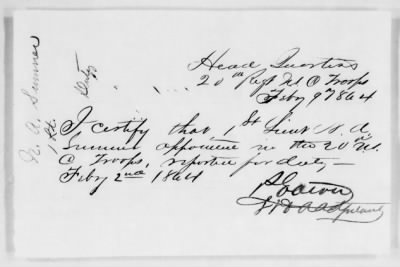 Head Quarters
20th Regt U S C Troops
Feby 9th 1864
I certify that 1st Lieut N. A.
Sumner appointed in the 20th U.S.
C Troops, reported for duty—
Feby 2nd 1864
Adjutant
N. A. Sumner
1 Lt. Duty